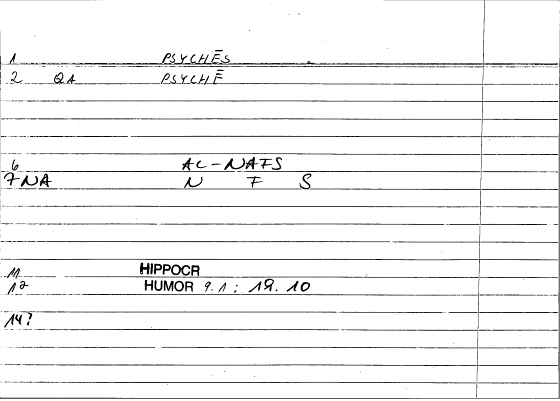 1 PSYCHĒS
2 QA PSYCHĒ
6 AL-NAFS
7 NA N F S
11 HIPPOCR
12 HUMOR 9.1 : 19.10
14?